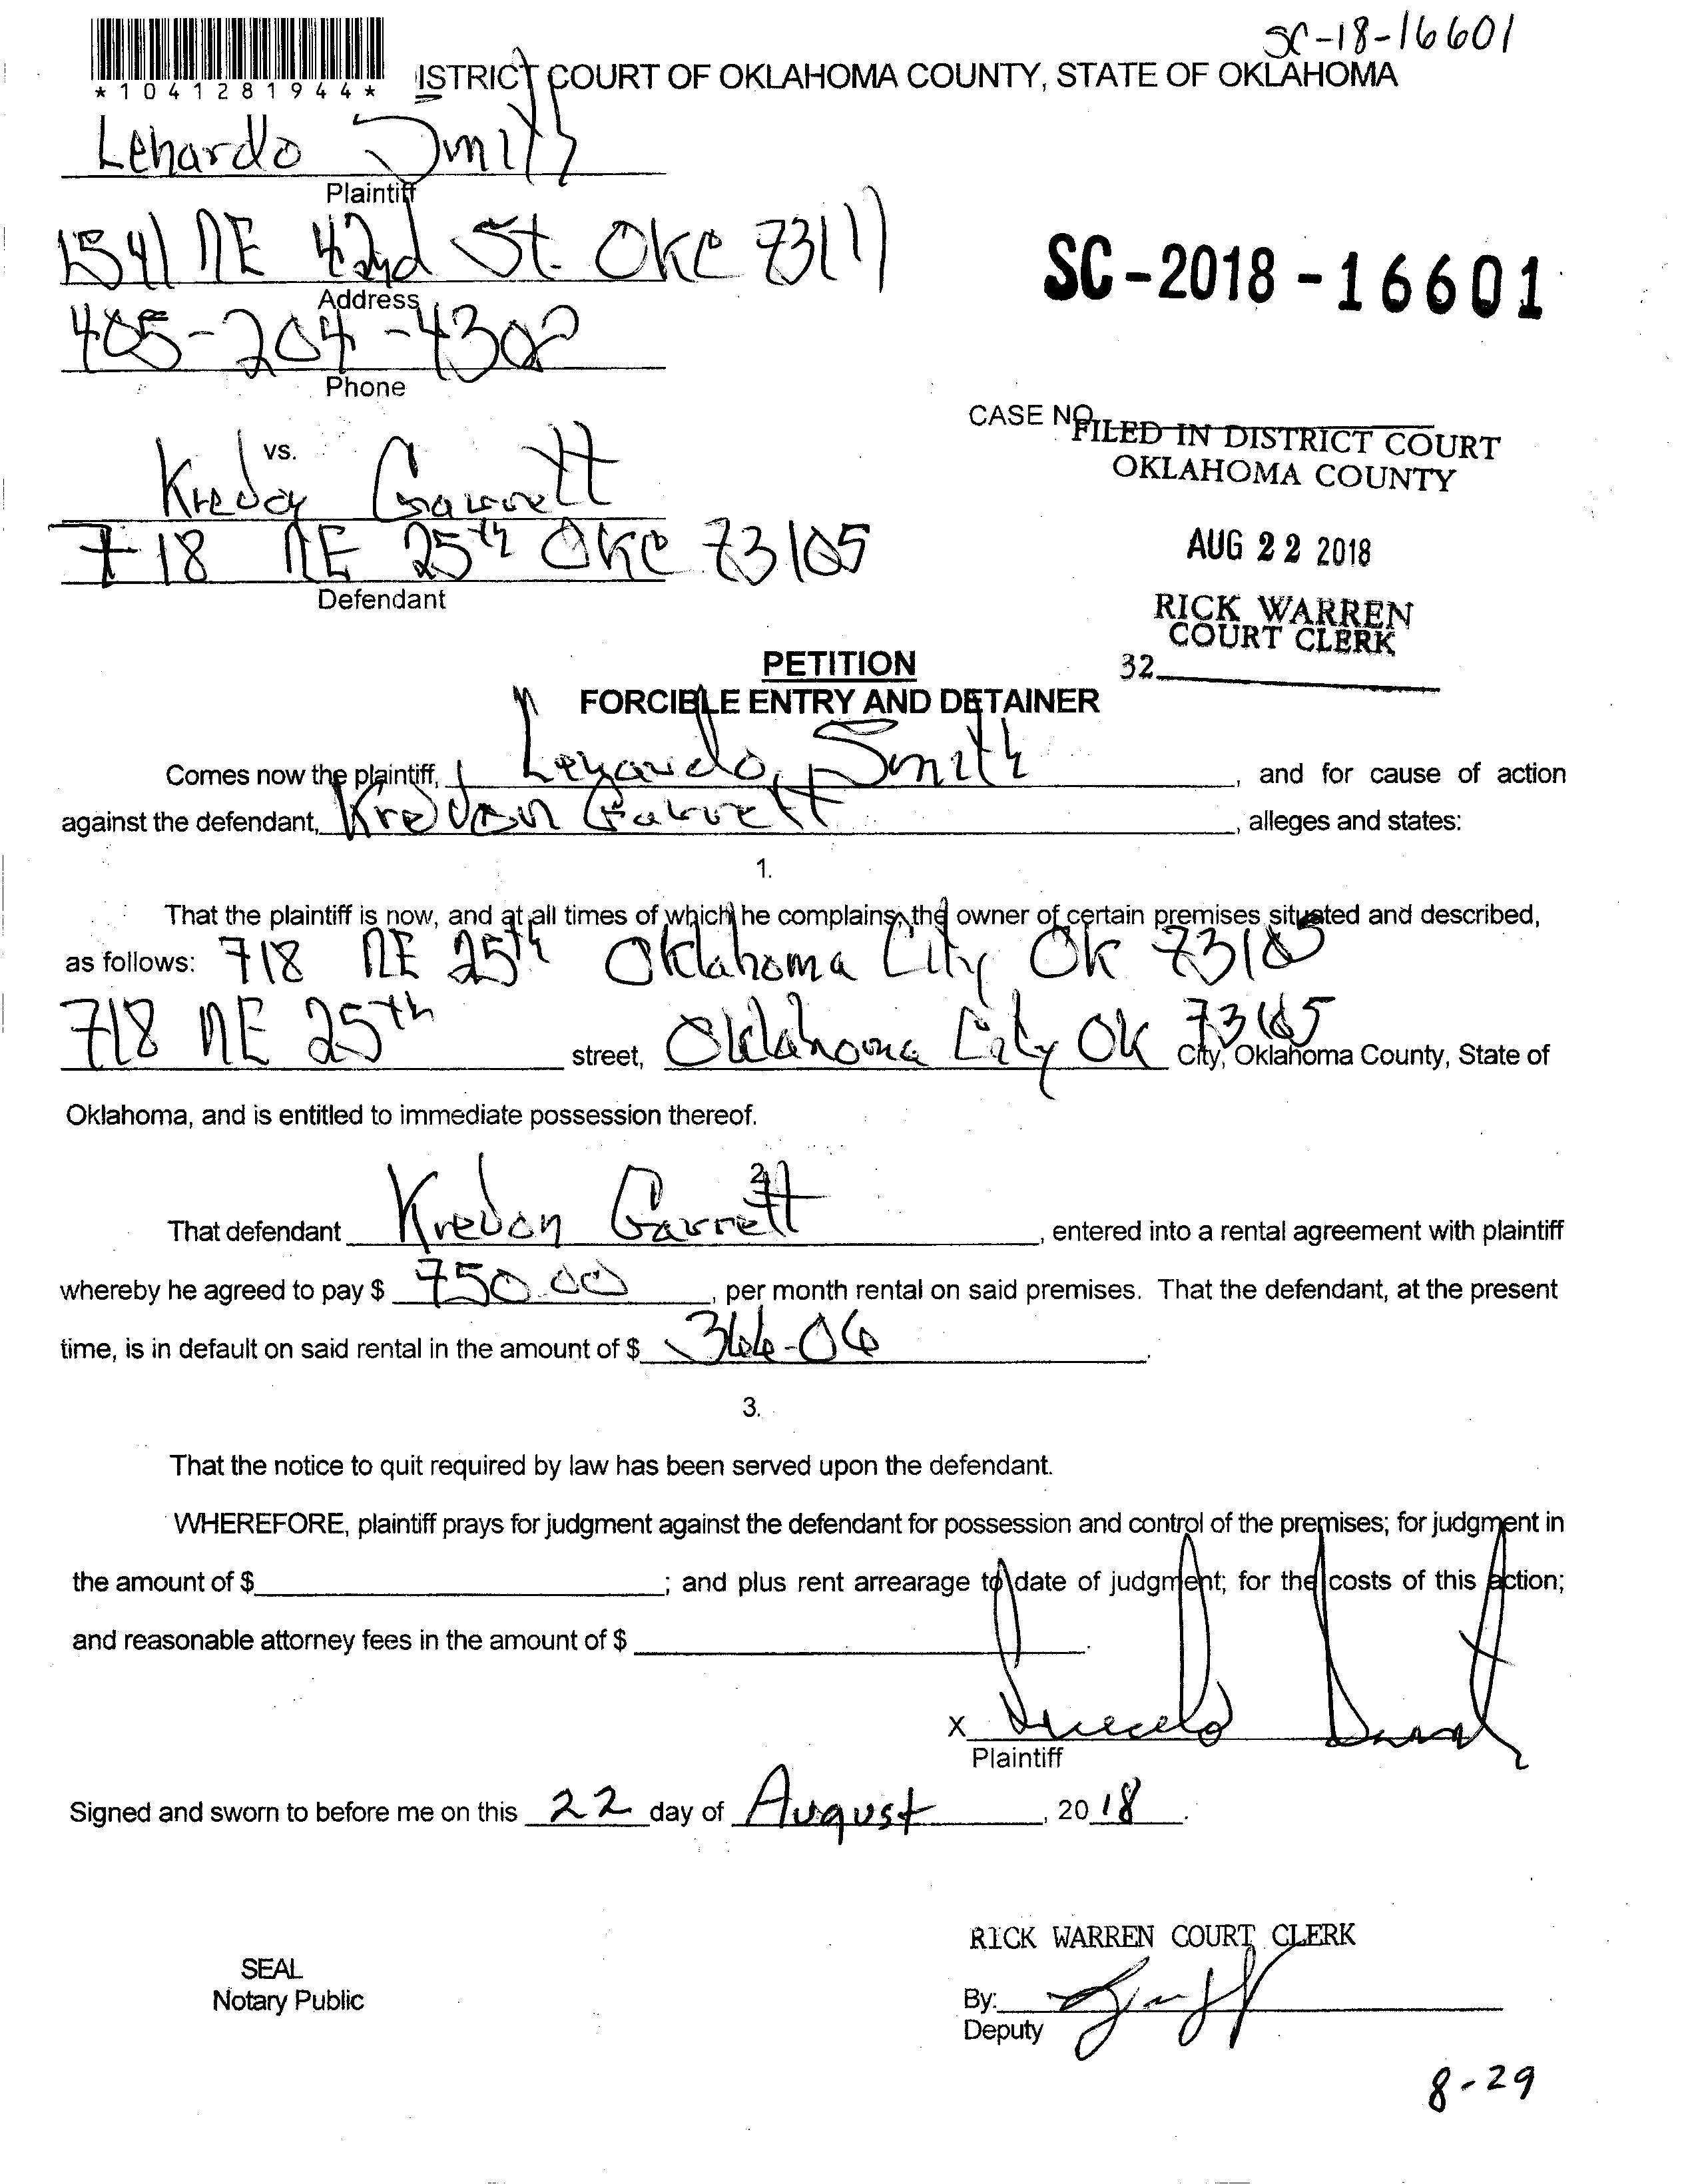 SC-18-16601
*1041281944*
ISTRICT COURT OF OKLAHOMA COUNTY, STATE OF OKLAHOMA
Lenardo Smith
Plaintiff
1541 NE 42nd St. OKC 73111
Address
SC-2018-16601
405-204-4302
Phone
CASE NO.
FILED IN DISTRICT COURT
OKLAHOMA COUNTY
vs.
Garrett
718 NE 25th OKC 73105
Defendant
AUG 22 2018
RICK WARREN
COURT CLERK
32
PETITION
FORCIBLE ENTRY AND DETAINER
Comes now the plaintiff, Lenardo Smith, and for cause of action
against the defendant, Kredon Garrett, alleges and states:
1.
That the plaintiff is now, and at all times of which he complains, the owner of certain premises situated and described,
as follows: 718 NE 25th Oklahoma City OK 73105
718 NE 25th street, Oklahoma City OK 73105 City, Oklahoma County, State of
Oklahoma, and is entitled to immediate possession thereof.
2.
That defendant Kredon Garrett, entered into a rental agreement with plaintiff
whereby he agreed to pay $ 750.00, per month rental on said premises. That the defendant, at the present
time, is in default on said rental in the amount of $ 366-06.
3.
That the notice to quit required by law has been served upon the defendant.
WHEREFORE, plaintiff prays for judgment against the defendant for possession and control of the premises; for judgment in
the amount of $ ; and plus rent arrearage to date of judgment; for the costs of this action;
and reasonable attorney fees in the amount of $ .
X
Plaintiff
Signed and sworn to before me on this 22 day of August, 20 18.
RICK WARREN COURT CLERK
SEAL
Notary Public
By:
Deputy
8-29